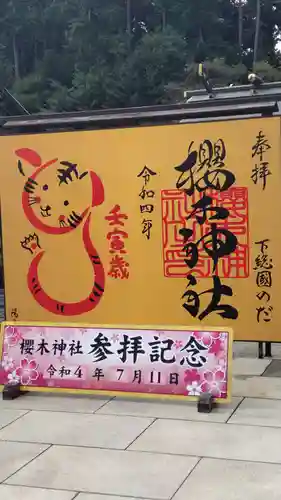 奉拝
下総國のだ
櫻木神社
令和四年
壬寅歳
櫻木神社 参拝記念
令和 4 年 7 月 11 日